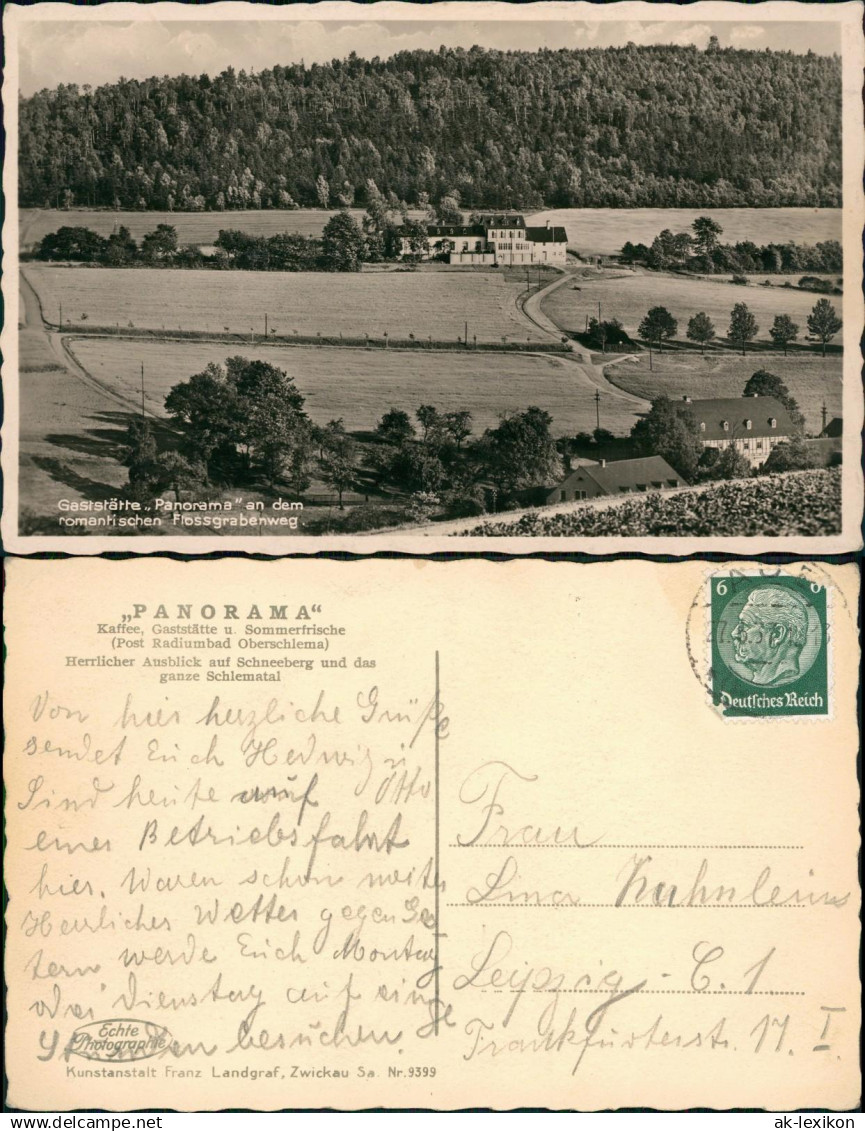 Gaststätte „Panorama" an dem
romantischen Flossgrabenweg.
„PANORAMA"
Kaffee, Gaststätte u. Sommerfrische
(Post Radiumbad Oberschlema)
Herrlicher Ausblick auf Schneeberg und das
ganze Schlematal
Von hier herzliche Grüße
sendet Euch Hedwig u
Otto
Sind heute auf
einer Betriebsfahrt
hier. Waren schon weiter
Herrliches Wetter gegen Ges
tern werde Euch Montag
oder Dienstag auf einige
Stunden besuchen.
Echte
Photographie
Kunstanstalt Franz Landgraf, Zwickau Sa. Nr. 9399
6 6
Deutsches Reich
Frau
Lina
Leipzig - C. 1.
Frankfurterstr. 17. I
www.delcampe.net
ak-lexikon